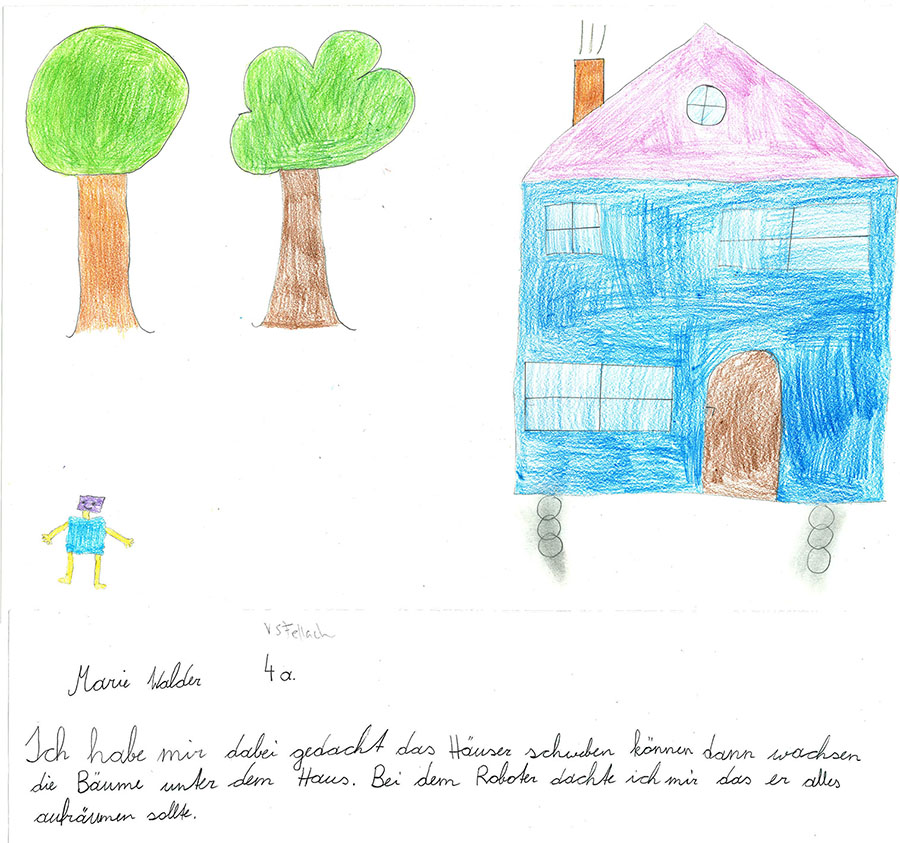 VS Fellach
Marie Walder 4a.
Ich habe mir dabei gedacht das Häuser schweben können dann wachsen
die Bäume unter dem Haus. Bei dem Roboter dachte ich mir das er alles
aufräumen sollte.